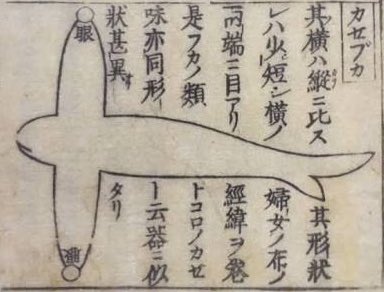 カセブカ
其横ハ縱ニ比ス
レハ少短シ横ノ
両端ニ目アリ
是フカノ類
味亦同形
狀甚異
其形狀
婦女ノ布ノ
經緯ヲ卷
トコロノカセ
ト云器ニ似
タリ
眼
眼